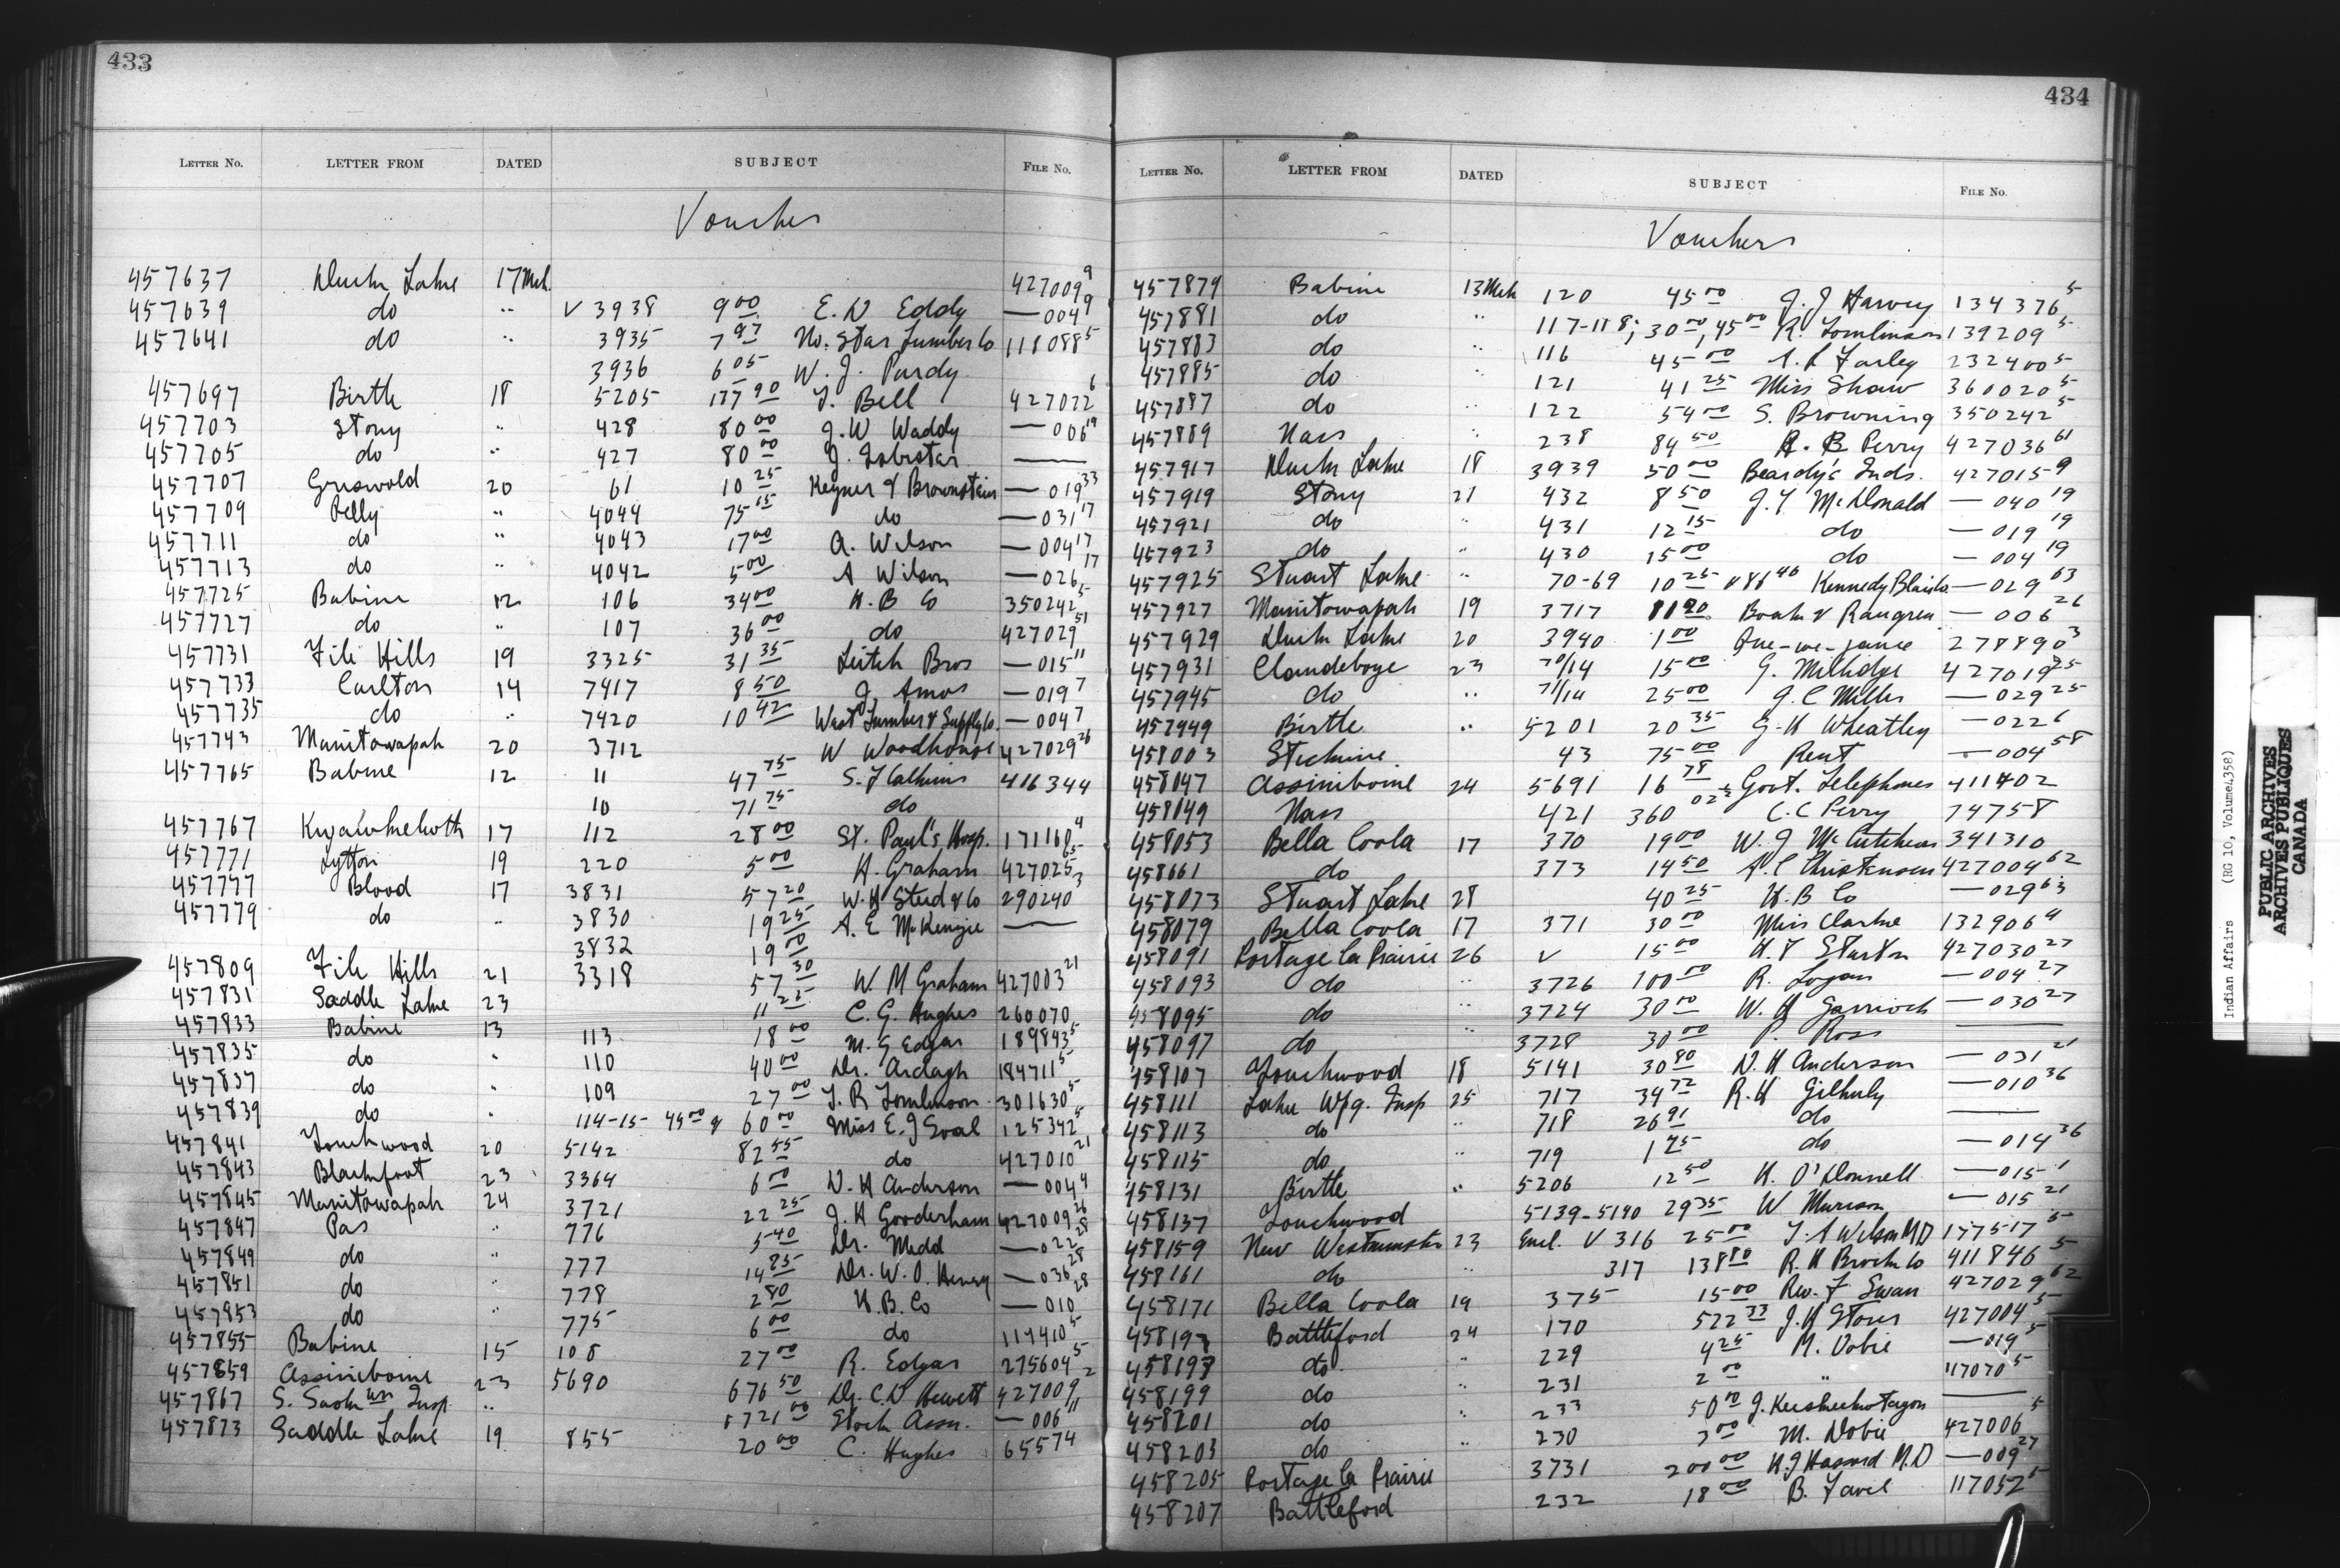 433
LETTER No. LETTER FROM DATED SUBJECT FILE No.
Voucher
457637 Duck Lake 17 Mch. 427009 9
457639 do " V 3938 9 00 E. D Eddy — 004 9
457641 do " 3935 7 97 No. Star Lumber Co 118088 5
3936 6 05 W. J. Purdy
457697 Birtle 18 5205 177 90 J. Bell 427022 6
457703 Stony " 428 80 00 J. W Waddy — 006 19
457705 do " 427 80 00 J. Isbister ——
457707 Griswold 20 61 10 25 Keyner & Brownstein — 019 33
457709 Pelly " 4044 75 15 do — 031 17
457711 do " 4043 17 00 A. Wilson — 004 17
457713 do 4042 5 00 A Wilson — 026 17
457725 Babine 12 106 34 00 H. B Co 350242 5
457727 do " 107 36 00 do 427029 51
457731 File Hills 19 3325 31 35 Leitch Bros — 015 11
457733 Carlton 14 7417 8 50 J. Amos — 019 7
457735 do " 7420 10 42 West Lumber & Supply Co. — 004 7
457743 Manitowapah 20 3712 W Woodhouse 427029 26
457765 Babine 12 11 47 75 S. J Calkins 416344
10 71 75 do
457767 Kwawkewlth 17 112 28 00 St. Paul's Hosp. 171160 4
457771 Lytton 19 220 5 00 H. Graham 427025 65
457777 Blood 17 3831 57 20 W. H Stead & Co 290240 3
457779 do " 3830 19 25 A. E McKenzie ——
3832 19 00
457809 File Hills 21 3318 57 30 W. M Graham 427003 21
457831 Saddle Lake 23 11 25 C. G. Hughes 260070
457833 Babine 13 113 18 00 M. G Edgar 189843 5
457835 do " 110 40 00 Dr. Ardagh 184711 5
457837 do " 109 27 00 J. R Tomlinson 301630 5
457839 do " 114-15 45 00 & 60 00 Miss E. J Soal 125342 5
457841 Touchwood 20 5142 82 55 do 427010 21
457843 Blackfoot 23 3364 6 00 D. H Anderson — 004 4
457845 Manitowapah 24 3721 22 25 J. H Gooderham 427009 26
457847 Pas " 776 5 40 Dr. Medd — 022 28
457849 do " 777 14 85 Dr. W. O. Henry — 036 28
457851 do 778 2 80 H. B. Co — 010 28
457853 do " 775 6 00 do 117410 5
457855 Babine 15 108 27 00 R. Edgar 275604 5
457859 Assiniboine 23 5690 676 50 Dr. C. D Hewett 427009 2
457867 S. Sask wn Insp. " 1721 00 Stock Assn. — 006 11
457873 Saddle Lake 19 855 20 00 C. Hughes 65574
434
LETTER No. LETTER FROM DATED SUBJECT FILE No.
Vouchers
457879 Babine 13 Mch 120 45 00 J. J Harvey 134376 5
457881 do " 117-118; 30 00, 45 00 R. Tomlinson 139209 5
457883 do " 116 45 00 Farley 232400 5
457885 do " 121 41 25 Miss Shaw 360020 5
457887 do " 122 54 00 S. Browning 350242 5
457889 Nass " 238 84 50 B Perry 427036 61
457917 Duck Lake 18 3939 50 00 Beardy's Inds. 427015 9
457919 Stony 21 432 8 50 J. Y McDonald — 040 19
457921 do " 431 12 15 do — 019 19
457923 do " 430 15 00 do — 004 19
457925 Stuart Lake " 70-69 10 25 & 86 46 Kennedy Blair Co — 029 63
457927 Manitowapah 19 3717 81 20 & Rangren — 006 26
457929 Duck Lake 20 3940 1 00 278890 3
457931 Clandeboye 23 70/14 15 00 G. Millidge 427019 25
457945 do " 71/14 25 00 J. C Miller — 029 25
457949 Birtle " 5201 20 35 G. H Wheatley — 022 6
458003 Stickine 43 75 00 Rent — 004 58
458047 Assiniboine 24 5691 16 78 Govt. Telephones 411402
458049 Nass 421 360 02 C. C Perry 74758
458053 Bella Coola 17 370 19 00 W. J McCutcheon 341310
458661 do 373 14 50 A. C Christensen 427004 62
458073 Stuart Lake 28 40 25 H. B Co — 029 63
458079 Bella Coola 17 371 30 00 Miss Clarke 132906 4
458091 Portage la Prairie 26 V 15 00 H. T Starton 427030 27
458093 do " 3726 100 00 R. Logan — 004 27
458095 do 3724 30 00 W. H Garrioch — 030 27
458097 do " 3728 30 00 P. Ross ——
458107 Touchwood 18 5141 30 80 D. H Anderson — 031 21
458111 Lake Wpg. Insp 25 717 34 72 R. H Gilhuly — 010 36
458113 do " 718 26 91 do ——
458115 do 719 1 75 do — 014 36
458131 Birtle " 5206 12 50 H. O'Donnell — 015 1
458137 Touchwood 5139-5140 29 35 W Murison — 015 21
458159 New Westminster 23 Encl. V 316 25 00 J. A Wilson M D 177517 5
458161 do " 317 138 80 R. H Brock Co 411846 5
458171 Bella Coola 19 375 15 00 Rev. F Swan 427029 62
458197 Battleford 24 170 522 33 J. H Stores 427004 5
458193 do " 229 4 25 M. Dobie — 019 5
458199 do " 231 2 00 " 117070 5
458201 do " 233 50 00 ——
458203 do " 230 3 00 M. Dobie 427006 5
458205 Portage la Prairie 3731 200 00 H. J Hassard M. D — 009 27
458207 Battleford 232 18 00 B. Favel 117052 5
Indian Affairs (RG 10, Volume 4358)
PUBLIC ARCHIVES
ARCHIVES PUBLIQUES
CANADA